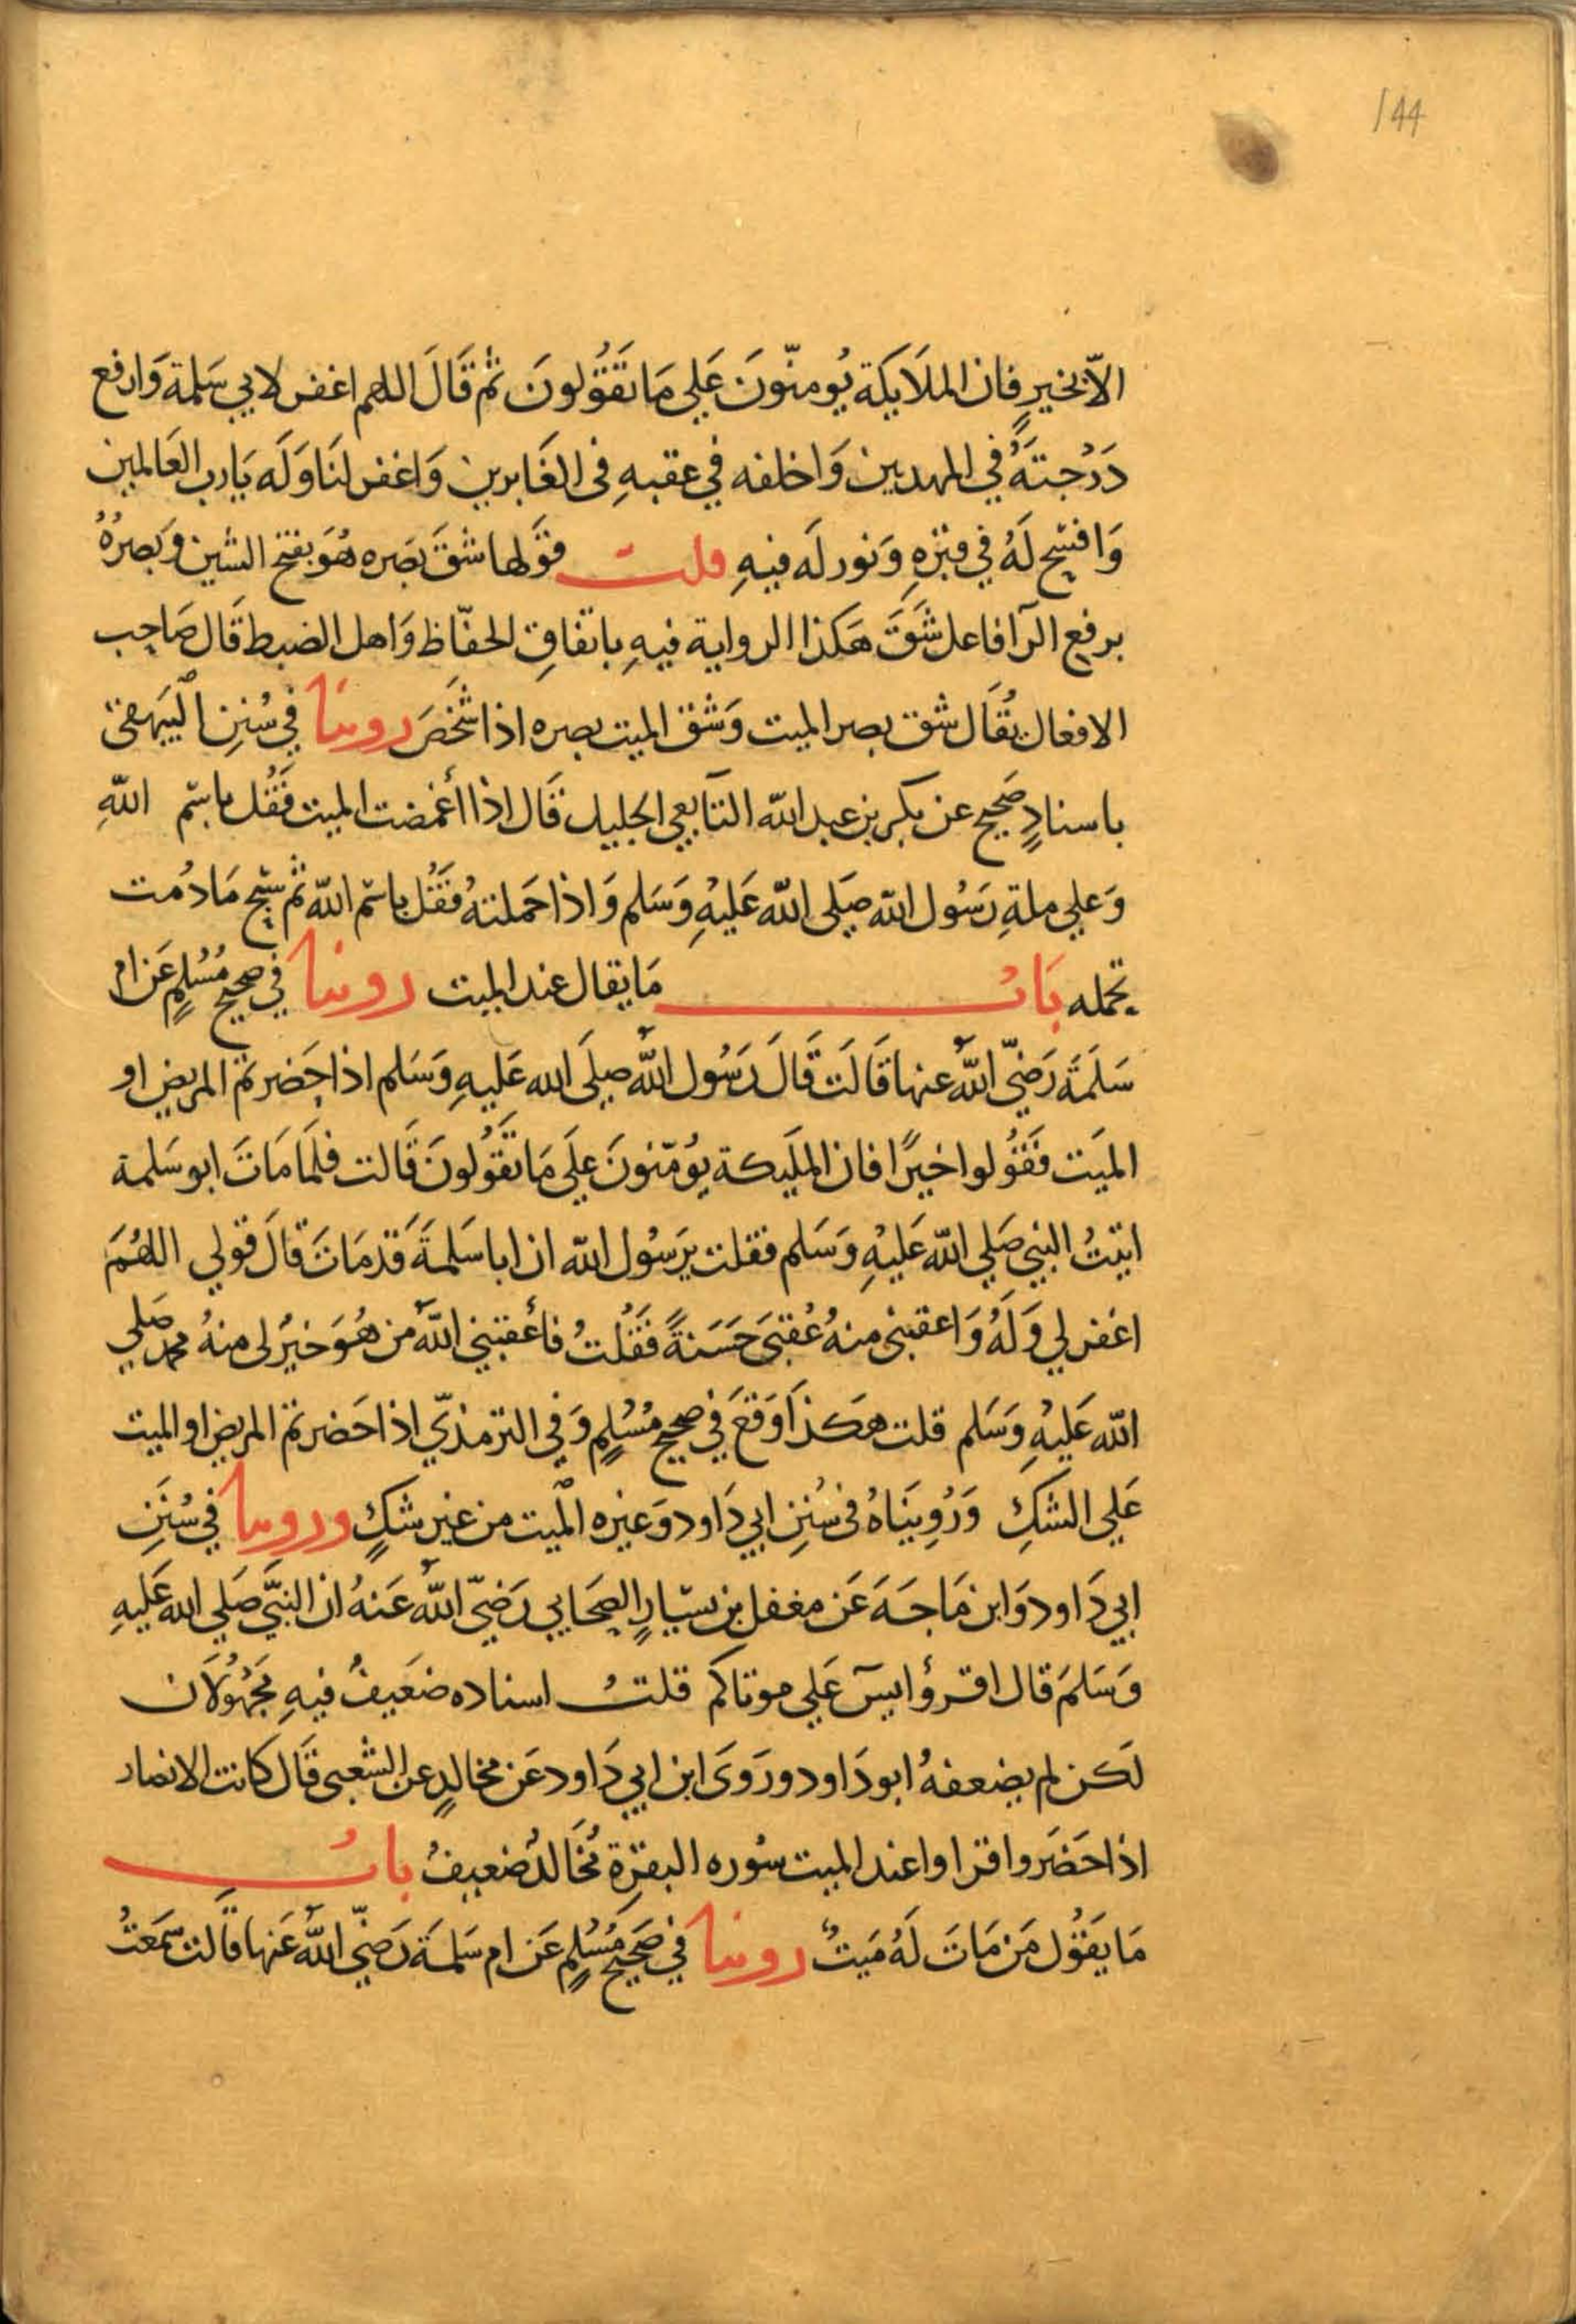 144
الاّ بخيرٍ فان الملَايكَة يُومنّونَ عَلي مَا تقَوُلونَ ثمُ قَالَ اللهم اغفر لابي سَلمة وَارفع
دَرُجتَهُ في المهديين وَاخلفه في عقبهِ فى الغَابرين وَاغفر لنَا وَلَه يَارب العَالمين
وَافسَح لَهُ في قبرهِ وَنور لَه فيهِ قلت قوَلها شقَ بَصَره هُوَ بفتح الشين وَبصرُهُ
برفع الرآ فاعل شَقَ هَكذا الرواية فيهِ باتفاقِ الحفّاظ وَاهل الضبط قَال صَاحِب
الافعال يُقَال شق بصر الميت وَشق الميت بصره اذا شَخَصَ روينَا في سُننِ الَبيَهقى
باسنادٍ صَحيح عن بكر بن عبد اللّه التَابعي الجليل قَال اذا أغمضت الميت فَقُل باسْم اللّهِ
وَعلي ملةِ رَسُول اللّه صَلى اللّه عَليهِ وَسَلم وَاذا حَملتهُ فقَُل باسْم اللّه ثم سَبّح مَا دُمت
تحمله بَابُ مَا يقال عند الميت روينا في صحيح مُسُلمٍ عَن ام
سَلَمَةَ رَضيّ اللّهُ عنها قَالَت قَالَ رَسُول اللّه صلَى الله عَليهِ وَسَلم اذا حَضرتمُ المريض او
الميَت فَقوُلوا خيرًا فان المليَكة يوُمّنونَ علَي مَا تقَوُلونَ قَالت فلَما مَاتَ ابو سَلمة
اتيتُ النبي صَلي اللّه عَليْهِ وَسَلم فقلت يرَسُول اللّه ان ابا سَلمةَ قَد مَاتَ قالَ قولي اللهُمَ
اغفر لي وَلَهُ وَاعقبنى منهُ عُقبَى حَسَنةً فقَُلتُ فأعَقبني اللّه مَن هُوَ خيرُ لى منهُ محمد صَلي
اللّه عَليْهِ وَسَلم قلت هكذَا وَقعَ في صحيح مُسُلمٍ وَفي الترمذيّ اذا حَضرتم المريض او الميت
عَلي الشكِ وَرُوِينَاهُ فى سُننِ ابي دَاود وَغيره المَيت من غير شكٍ وروينا في سُنَنِ
ابي دَاود وَابن مَاجَهَ عَن مغفل بن يسَارٍ الصحَابي رَضيّ اللّهُ عَنهُ ان النبيَّ صَلي الله عَليهِ
وَسَلمَ قال اقرؤا يسَ عَلي موتاكم قلتُ اسناده ضعَيفُ فيهِ مَجهوُلاَن
لَكن لم يضعفهُ ابو دَاود ورَوَى ابن ابي دَاود عَن مخالدٍ عن الشعبى قَال كانت الانصَار
اذا حَضَروا قراوا عند الميت سُوره البقرةِ مُخَالدُ ضعيفُ بابُ
مَا يَقوُل مَن مَاتَ لَهُ مَيتُ روينا في صَحيح مُسُلمٍ عَن ام سَلمَة رَضيّ اللّهُ عَنها قَالت سَمعتُ